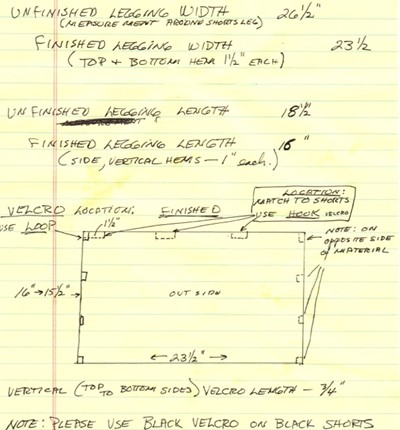 UNFINISHED LEGGING WIDTH 26 1/2"
(MEASUREMENT AROUND SHORTS LEG)
FINISHED LEGGING WIDTH 23 1/2
(TOP + BOTTOM HEM 1 1/2" EACH)
UNFINISHED LEGGING LENGTH 18 1/2"
FINISHED LEGGING LENGTH 16"
(SIDE, VERTICAL HEMS - 1" each.)
LOCATION:
MATCH TO SHORTS
USE HOOK VELCRO
VELCRO LOCATION: FINISHED
USE LOOP
1 1/2"
NOTE: ON
OPPOSITE SIDE
OF MATERIAL
16" → 15 1/2"
OUTSIDE
23 1/2"
VERTICAL (TOP TO BOTTOM SIDES) VELCRO LENGTH - 3/4"
NOTE: PLEASE USE BLACK VELCRO ON BLACK SHORTS